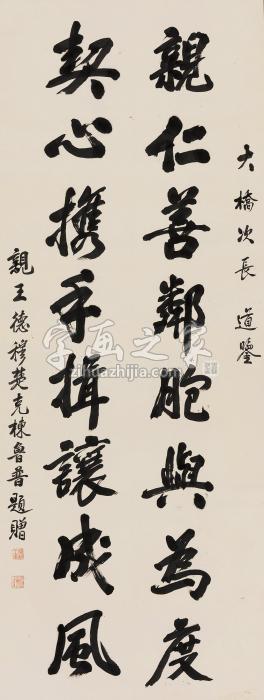 大橋次長 道鑒
親仁善鄰胞與為度
契心携手揖讓成風
親王德穆楚克棟魯普題贈
字画之家
zihuazhijia.com